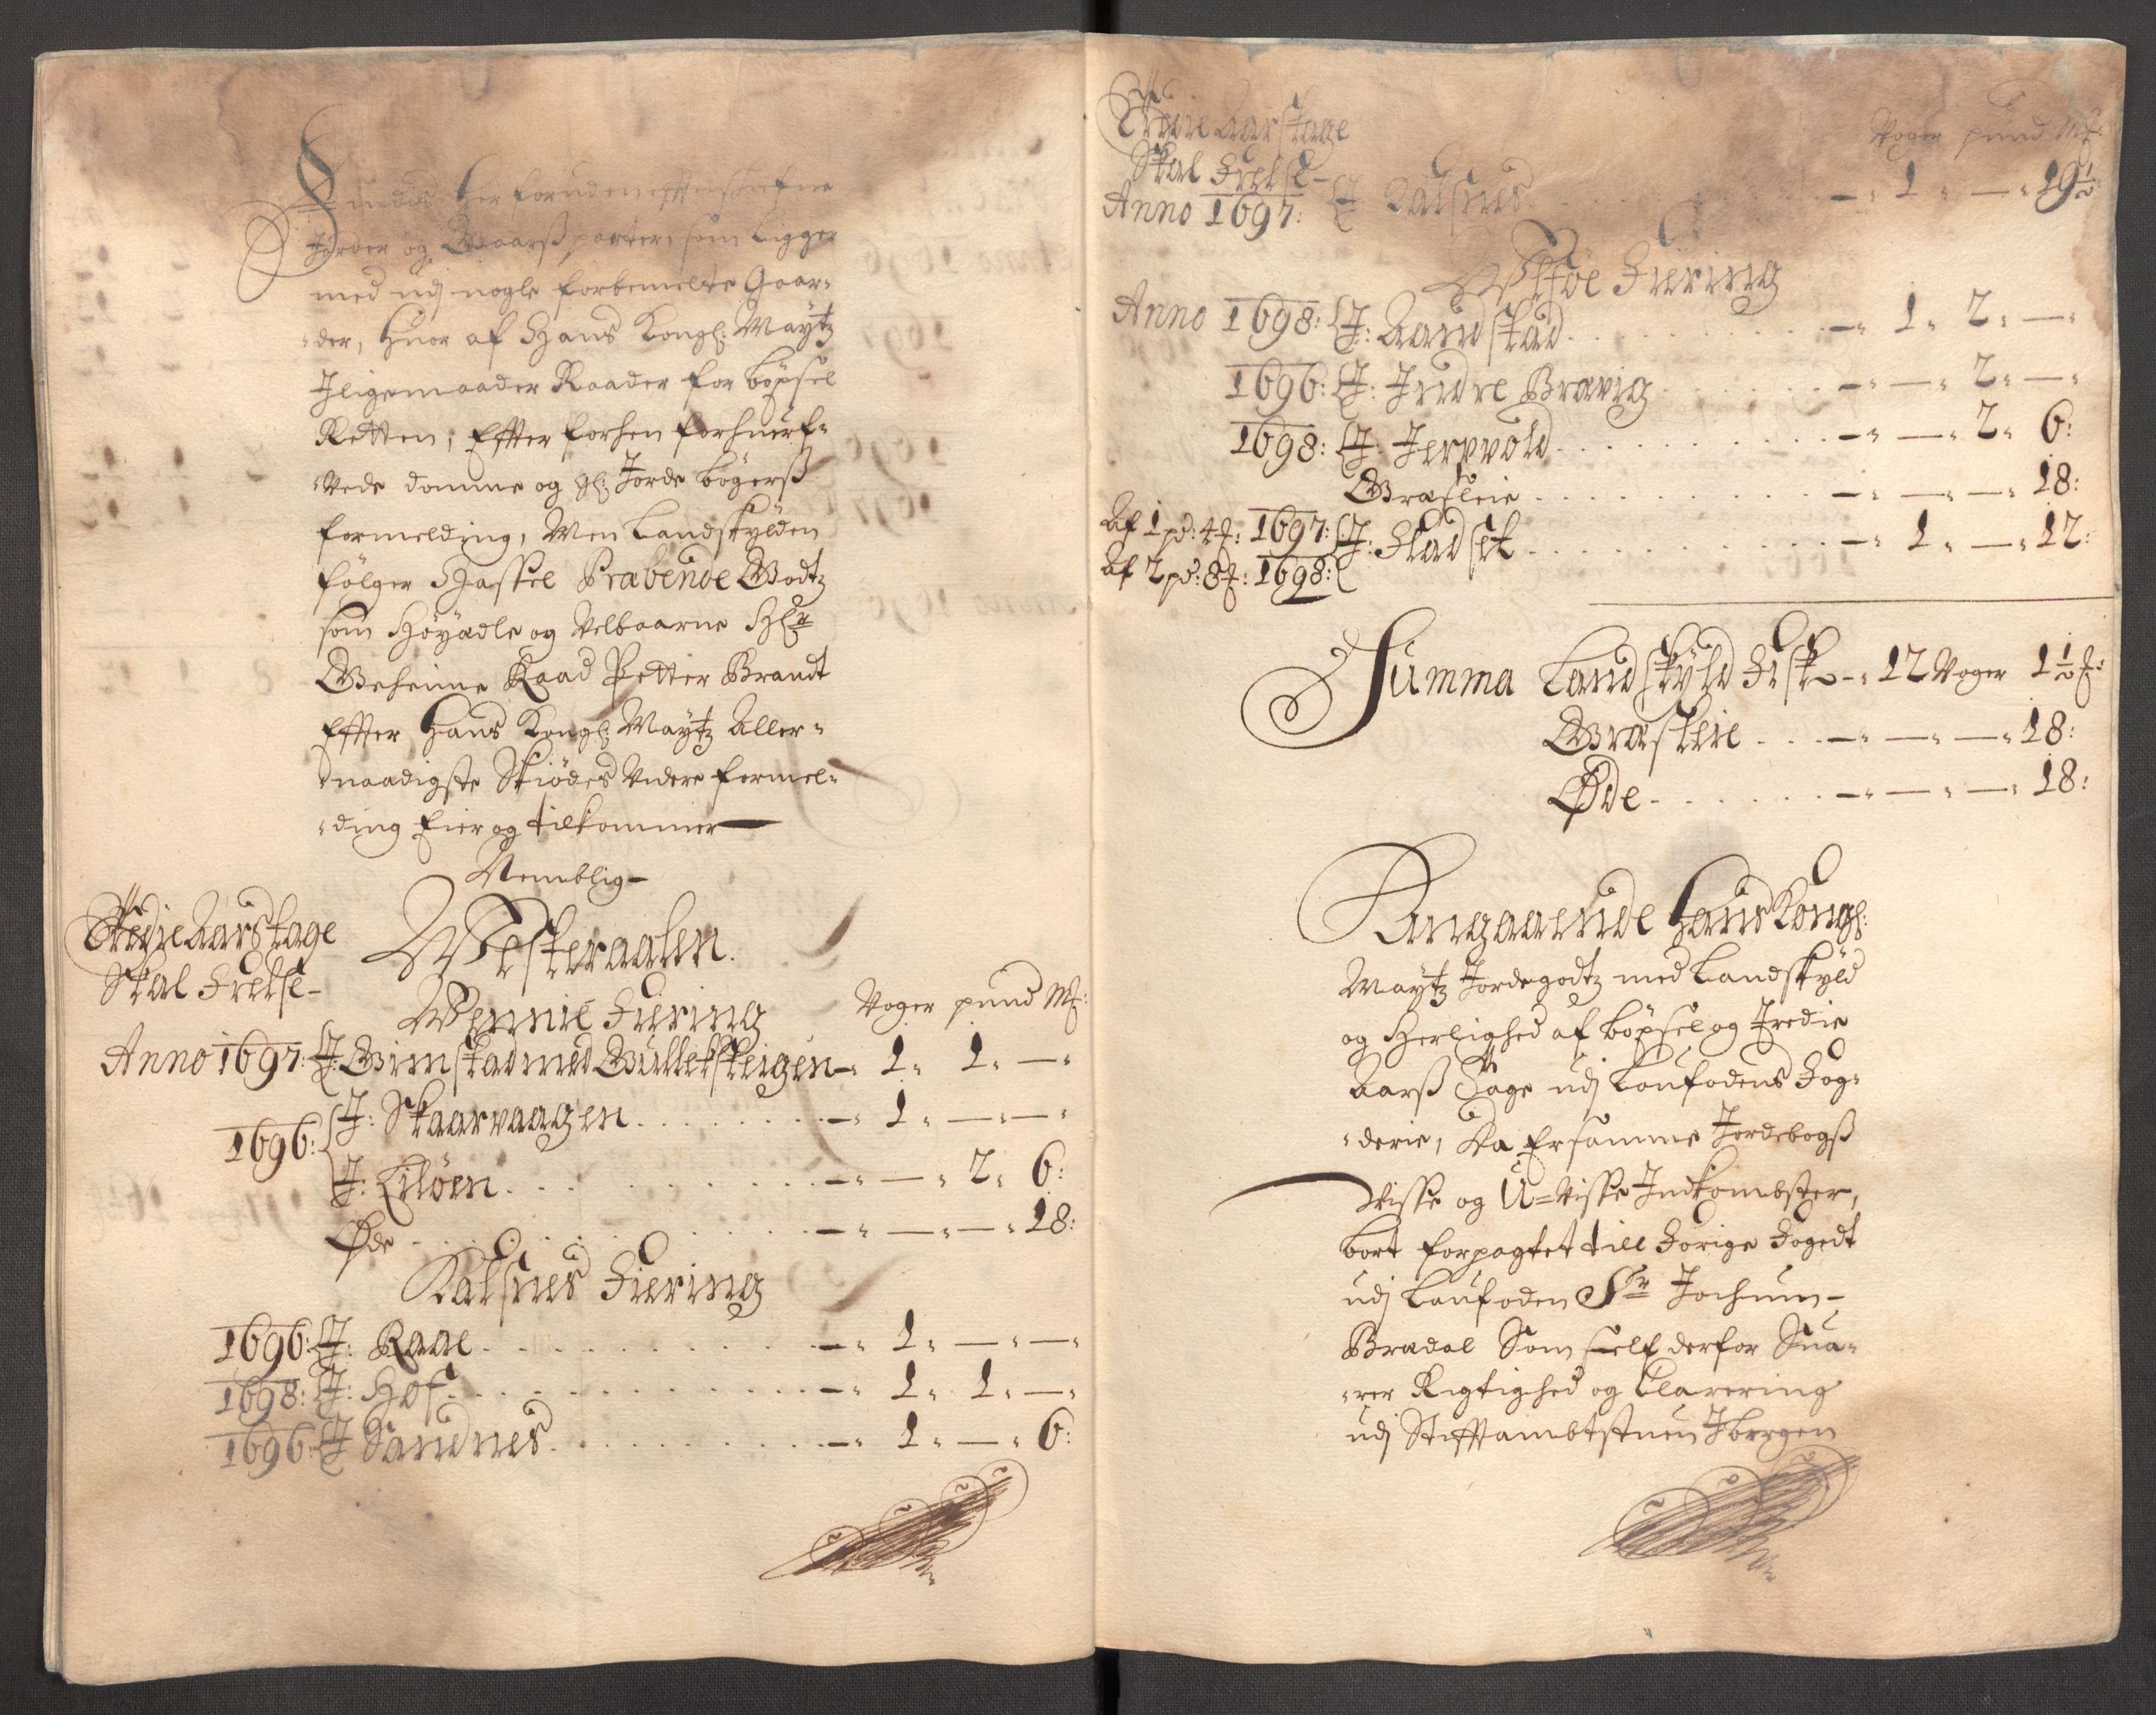 Findis her foruden effterskrefne
Jorder og Gaarß parter, som ligger
med udj nogle forbemelte Gaar-
der, Huor af Hans Kongl: Maytz
Jligemaader Raader for böxsel
Retten, Effter forhen forhuerf-
vede domme og gl: Jorde bögerß
formelding, Men Landskylden
følger Hassel Præbende Godtz
som Höyædle og Velbaarne Hr
Geheime Raad Petter Brandt
Effter Hans Kongl: Maytz Aller-
naadigste Skiödes Videre formel-
ding Eier og tilkommer
Nemblig
Tredie Aars tage
Skal Frelse
Westeraalen.
Wennie Fiering
Voger pund Mk:
Anno 1697: J: Vimstad med Gulletsteigen - 1. 1. -
1696: J: Skaarvaagen - 1. - -
J: Eiløen - - 2. 6:
Øde - - - 18:
Kalsnes Fiering
1696: J: Raae - 1. - -
1698: J: Hof - 1. 1. -
1696: J Sandnes - 1. - 6:
Tredie Aars tage
Skal Frelse
Voger pund Mk:
Anno 1697: J: Kalsnes - 1. - 19½
Utføe Fiering
Anno 1698: J: Aandstad - 1. 2. -
1696: J: Indre Bravig - - 2. -
1698: J: Jervvold - - 2. 6:
Græsleie - - - 18:
Af 1 pd: 4 : 1697: J: Fladset - 1. - 12:
Af 2 pd: 8 : 1698:
Summa Landskyld Fisk - 12 Voger 1½ :
Græsleie - - - 18:
Øde - - - 18:
Angaaende Hans Kongl:
Maytz Jordegodtz med Landskyld
og Herlighed af böxsel og Tredie
Aarß Tage udj Loufodens Fog-
derie, Era Ersamme Jordebogß
Visse og U=Visse Indkombster,
bort forpagtet till Forige Fogedt
udj Loufoden Sr Jochum
Bredal Som self derfor Sua-
rer Rigtighed og Clarering
udj Stifftambtstuen J bergen